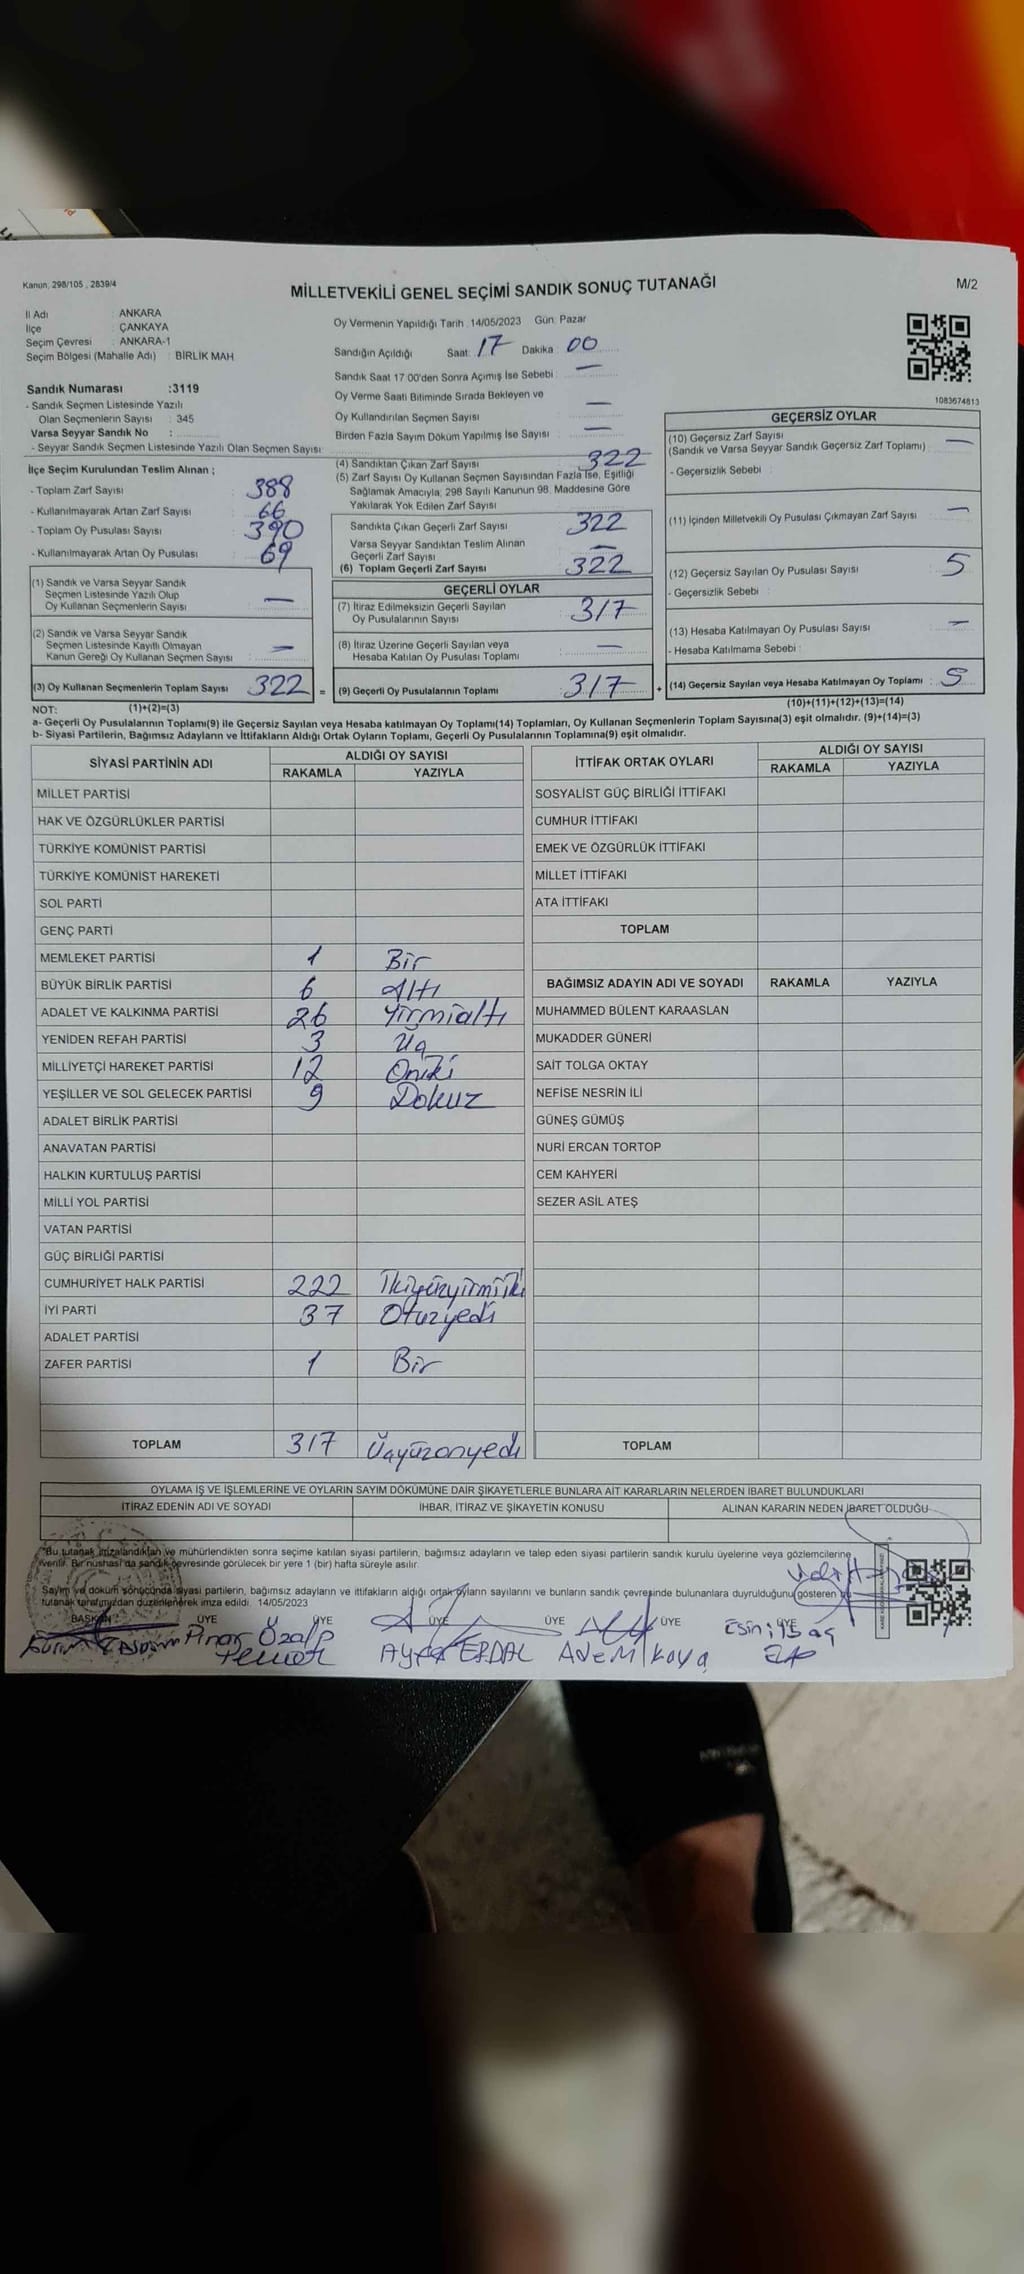 Kanun, 298/105 , 2839/4
MİLLETVEKİLİ GENEL SEÇİMİ SANDIK SONUÇ TUTANAĞI
M/2
İl Adı : ANKARA
İlçe : ÇANKAYA
Seçim Çevresi : ANKARA-1
Seçim Bölgesi (Mahalle Adı) : BİRLİK MAH
Sandık Numarası :3119
- Sandık Seçmen Listesinde Yazılı
Olan Seçmenlerin Sayısı : 345
Varsa Seyyar Sandık No :
- Seyyar Sandık Seçmen Listesinde Yazılı Olan Seçmen Sayısı :
Oy Vermenin Yapıldığı Tarih :14/05/2023 Gün: Pazar
Sandığın Açıldığı Saat: 17 Dakika : 00
Sandık Saat 17:00'den Sonra Açımış İse Sebebi : —
Oy Verme Saati Bitiminde Sırada Bekleyen ve
Oy Kullandırılan Seçmen Sayısı : —
Birden Fazla Sayım Döküm Yapılmış İse Sayısı : —
1083674813
İlçe Seçim Kurulundan Teslim Alınan ;
- Toplam Zarf Sayısı : 388
- Kullanılmayarak Artan Zarf Sayısı : 66
- Toplam Oy Pusulası Sayısı : 390
- Kullanılmayarak Artan Oy Pusulası : 69
(1) Sandık ve Varsa Seyyar Sandık
Seçmen Listesinde Yazılı Olup
Oy Kullanan Seçmenlerin Sayısı : —
(2) Sandık ve Varsa Seyyar Sandık
Seçmen Listesinde Kayıtlı Olmayan
Kanun Gereği Oy Kullanan Seçmen Sayısı : —
(3) Oy Kullanan Seçmenlerin Toplam Sayısı : 322 =
(4) Sandıktan Çıkan Zarf Sayısı : 322
(5) Zarf Sayısı Oy Kullanan Seçmen Sayısından Fazla İse, Eşitliği
Sağlamak Amacıyla; 298 Sayılı Kanunun 98. Maddesine Göre
Yakılarak Yok Edilen Zarf Sayısı
Sandıkta Çıkan Geçerli Zarf Sayısı : 322
Varsa Seyyar Sandıktan Teslim Alınan
Geçerli Zarf Sayısı : —
(6) Toplam Geçerli Zarf Sayısı : 322
GEÇERLİ OYLAR
(7) İtiraz Edilmeksizin Geçerli Sayılan
Oy Pusulalarının Sayısı : 317
(8) İtiraz Üzerine Geçerli Sayılan veya
Hesaba Katılan Oy Pusulası Toplamı : —
(9) Geçerli Oy Pusulalarının Toplamı : 317 +
GEÇERSİZ OYLAR
(10) Geçersiz Zarf Sayısı
(Sandık ve Varsa Seyyar Sandık Geçersiz Zarf Toplamı) : —
- Geçersizlik Sebebi :
(11) İçinden Milletvekili Oy Pusulası Çıkmayan Zarf Sayısı : —
(12) Geçersiz Sayılan Oy Pusulası Sayısı : 5
- Geçersizlik Sebebi :
(13) Hesaba Katılmayan Oy Pusulası Sayısı : —
- Hesaba Katılmama Sebebi :
(14) Geçersiz Sayılan veya Hesaba Katılmayan Oy Toplamı : 5
NOT: (1)+(2)=(3) (10)+(11)+(12)+(13)=(14)
a- Geçerli Oy Pusulalarının Toplamı(9) ile Geçersiz Sayılan veya Hesaba katılmayan Oy Toplamı(14) Toplamları, Oy Kullanan Seçmenlerin Toplam Sayısına(3) eşit olmalıdır. (9)+(14)=(3)
b- Siyasi Partilerin, Bağımsız Adayların ve İttifakların Aldığı Ortak Oyların Toplamı, Geçerli Oy Pusulalarının Toplamına(9) eşit olmalıdır.
SİYASİ PARTİNİN ADI ALDIĞI OY SAYISI
RAKAMLA YAZIYLA
MİLLET PARTİSİ
HAK VE ÖZGÜRLÜKLER PARTİSİ
TÜRKİYE KOMÜNİST PARTİSİ
TÜRKİYE KOMÜNİST HAREKETİ
SOL PARTİ
GENÇ PARTİ
MEMLEKET PARTİSİ 1 Bir
BÜYÜK BİRLİK PARTİSİ 6 Altı
ADALET VE KALKINMA PARTİSİ 26 Yirmialtı
YENİDEN REFAH PARTİSİ 3 Üç
MİLLİYETÇİ HAREKET PARTİSİ 12 Oniki
YEŞİLLER VE SOL GELECEK PARTİSİ 9 Dokuz
ADALET BİRLİK PARTİSİ
ANAVATAN PARTİSİ
HALKIN KURTULUŞ PARTİSİ
MİLLİ YOL PARTİSİ
VATAN PARTİSİ
GÜÇ BİRLİĞİ PARTİSİ
CUMHURİYET HALK PARTİSİ 222 İkiyüzyirmiiki
İYİ PARTİ 37 Otuzyedi
ADALET PARTİSİ
ZAFER PARTİSİ 1 Bir
TOPLAM 317 Üçyüzonyedi
İTTİFAK ORTAK OYLARI ALDIĞI OY SAYISI
RAKAMLA YAZIYLA
SOSYALİST GÜÇ BİRLİĞİ İTTİFAKI
CUMHUR İTTİFAKI
EMEK VE ÖZGÜRLÜK İTTİFAKI
MİLLET İTTİFAKI
ATA İTTİFAKI
TOPLAM
BAĞIMSIZ ADAYIN ADI VE SOYADI RAKAMLA YAZIYLA
MUHAMMED BÜLENT KARAASLAN
MUKADDER GÜNERİ
SAİT TOLGA OKTAY
NEFİSE NESRİN İLİ
GÜNEŞ GÜMÜŞ
NURİ ERCAN TORTOP
CEM KAHYERİ
SEZER ASİL ATEŞ
TOPLAM
OYLAMA İŞ VE İŞLEMLERİNE VE OYLARIN SAYIM DÖKÜMÜNE DAİR ŞİKAYETLERLE BUNLARA AİT KARARLARIN NELERDEN İBARET BULUNDUKLARI
İTİRAZ EDENİN ADI VE SOYADI İHBAR, İTİRAZ VE ŞİKAYETİN KONUSU ALINAN KARARIN NEDEN İBARET OLDUĞU
"Bu tutanak imzalandıktan ve mühürlendikten sonra seçime katılan siyasi partilerin, bağımsız adayların ve talep eden siyasi partilerin sandık kurulu üyelerine veya gözlemcilerine
verilir. Bir nüshası da sandık çevresinde görülecek bir yere 1 (bir) hafta süreyle asılır.
Sayım ve döküm sonucunda siyasi partilerin, bağımsız adayların ve ittifakların aldığı ortak oyların sayılarını ve bunların sandık çevresinde bulunanlara duyrulduğunu gösteren
tutanak tarafımızdan düzenlenerek imza edildi. 14/05/2023
BAŞKAN ÜYE ÜYE ÜYE ÜYE ÜYE ÜYE
Pınar Özalp
AYŞE ERDAL ADEM KAYA Esin